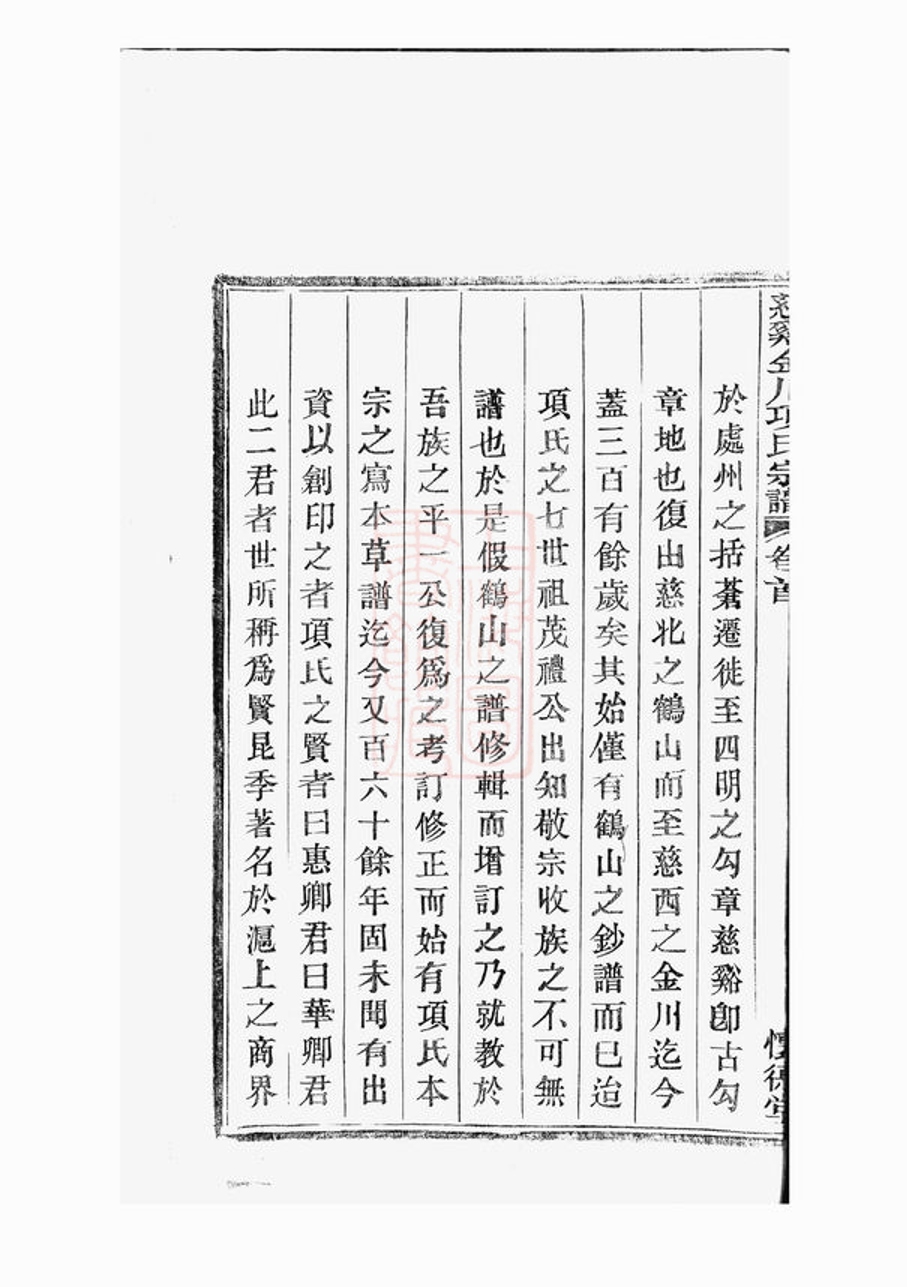 慈谿金川項氏宗譜 卷首 懷德堂
於處州之括蒼遷徙至四明之勾章慈谿卽古勾
章地也復由慈北之鶴山而至慈西之金川迄今
蓋三百有餘歲矣其始僅有鶴山之鈔譜而已迨
項氏之七世祖茂禮公出知敬宗收族之不可無
譜也於是假鶴山之譜修輯而增訂之乃就教於
吾族之平一公復爲之考訂修正而始有項氏本
宗之寫本草譜迄今又百六十餘年固未聞有出
資以創印之者項氏之賢者曰惠卿君曰華卿君
此二君者世所稱爲賢昆季著名於滬上之商界
上海圖書館藏